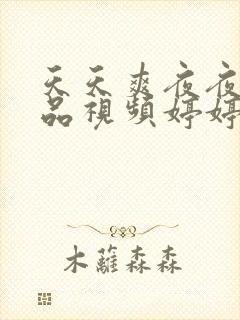 天天爽夜夜
品視頻婷婷
木蘿森森